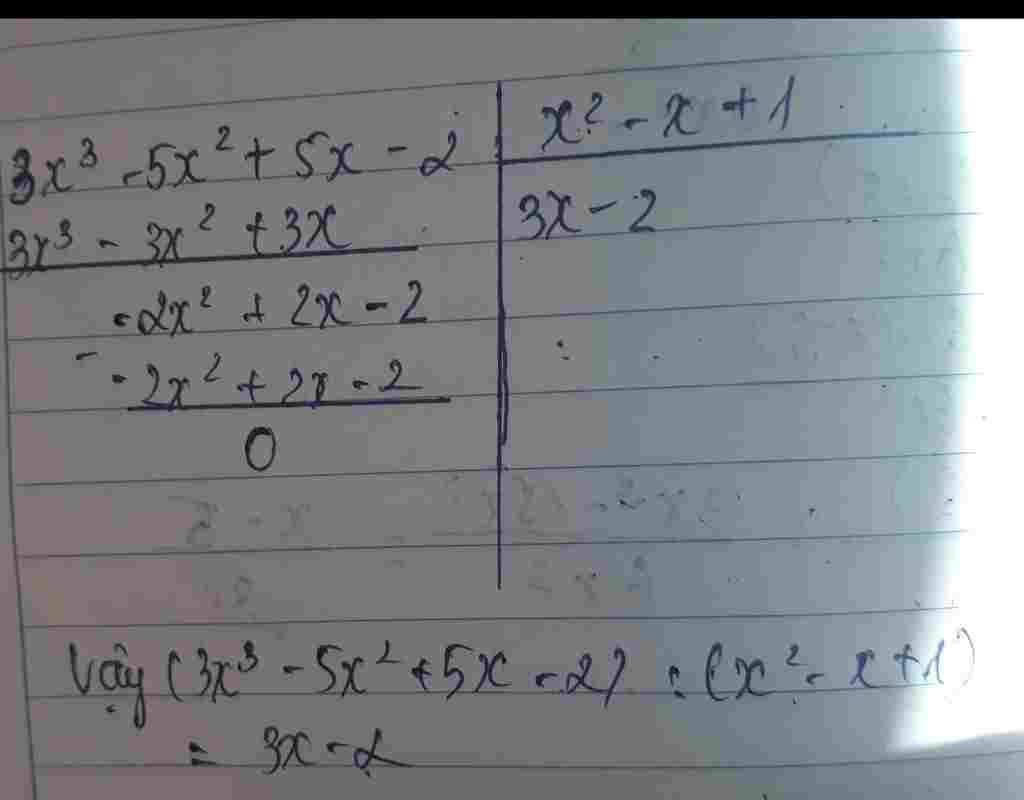 3x³ - 5x² + 5x - 2 | x² - x + 1
3x³ - 3x² + 3x | 3x - 2
- 2x² + 2x - 2
- - 2x² + 2x - 2
0
Vậy (3x³ - 5x² + 5x - 2) : (x² - x + 1)
= 3x - 2